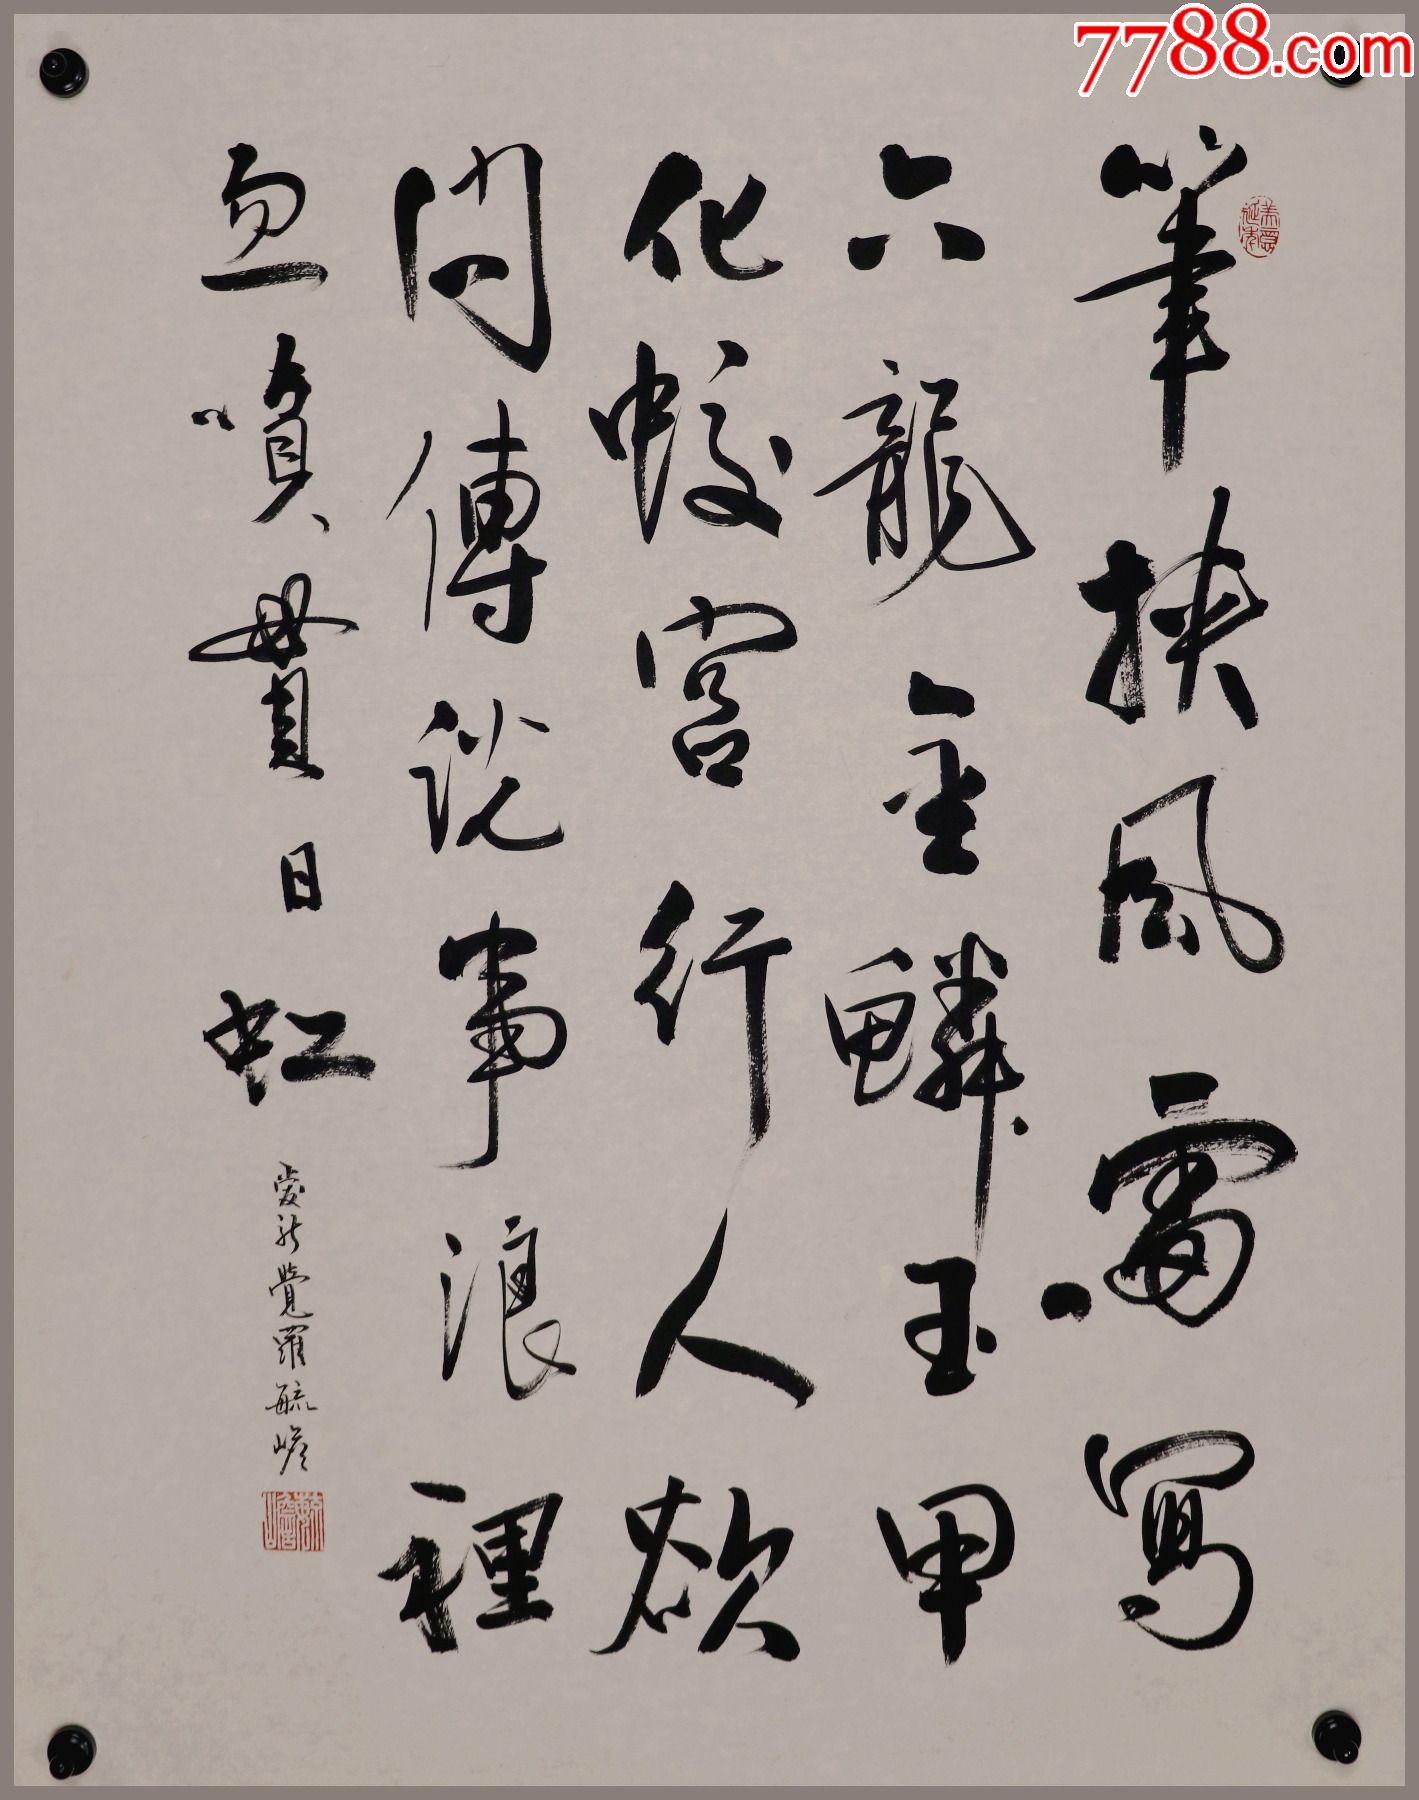 7788.com
筆挟風雷寫
六龍金鱗玉甲
化蛟宮行人欲
問傳說事浪裡
直噴貫日虹
愛新覺羅毓嶦